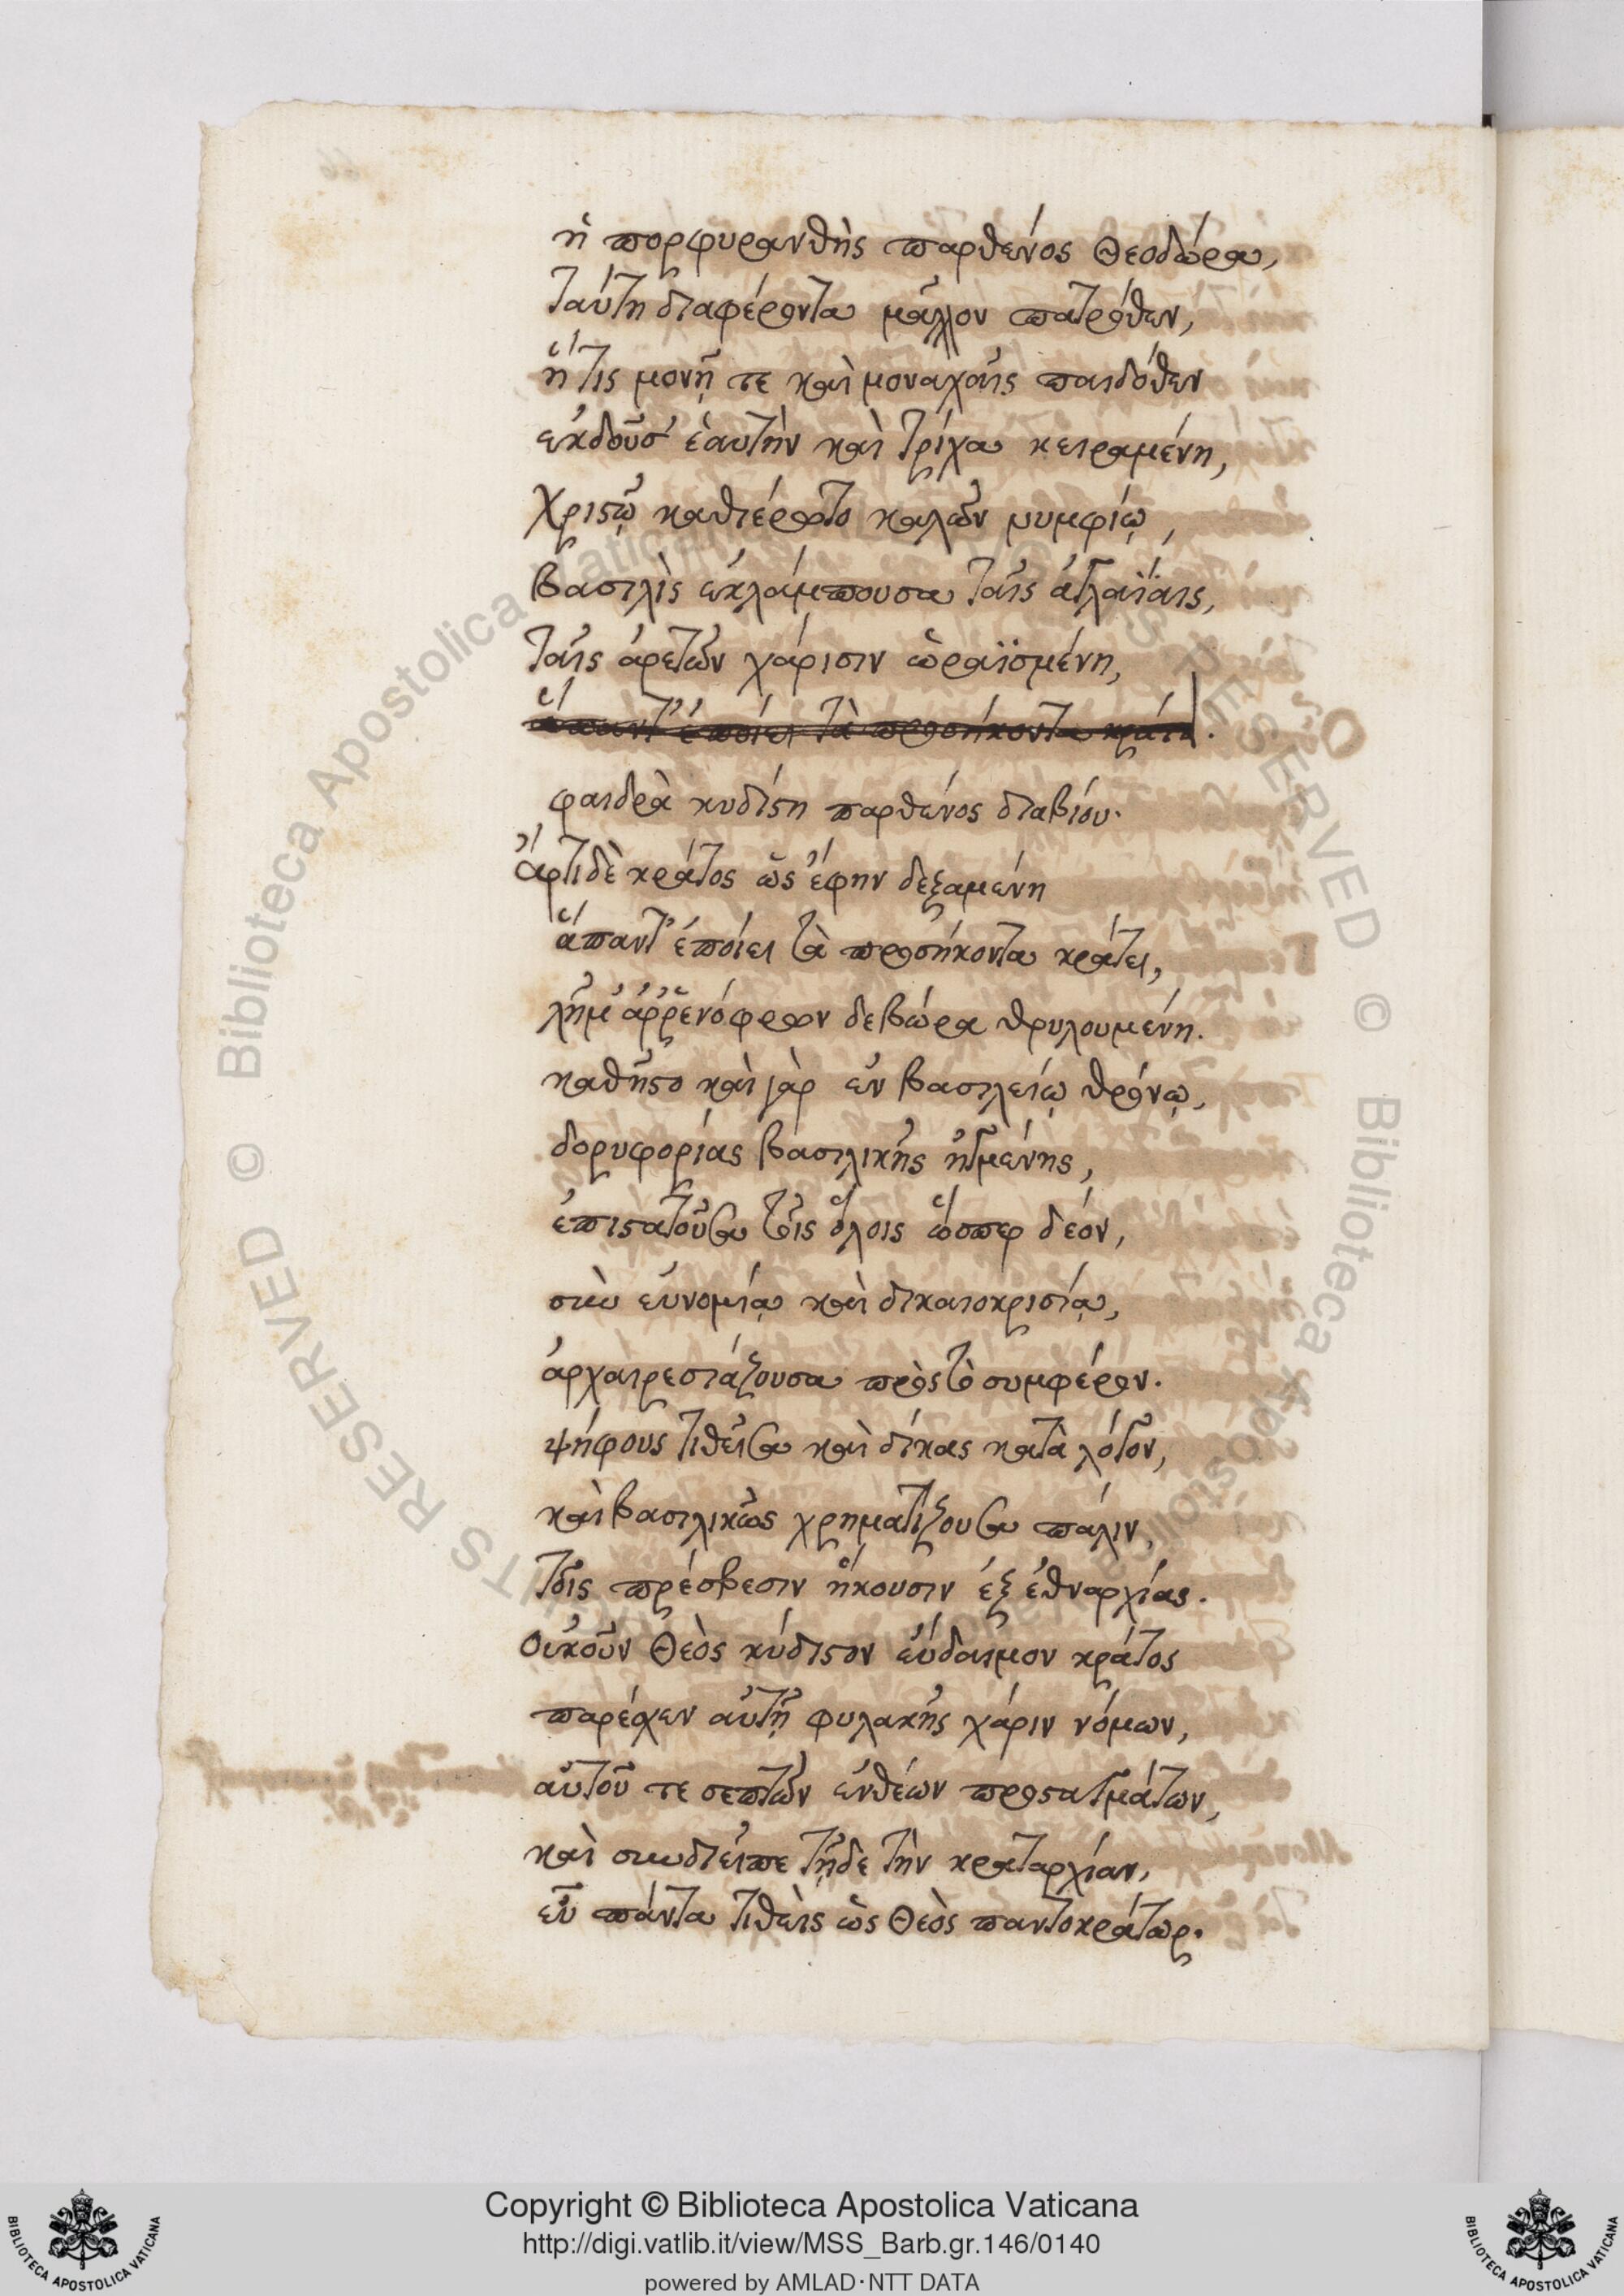 ἡ πορφυρανθὴς παρθένος Θεοδώρα,
ταύτῃ διαφέροντα μᾶλλον πατρόθεν,
ἥτις μονῇ τε καὶ μοναχαῖς παιδόθεν
ἐκδοῦσ' ἑαυτὴν καὶ τρίχα κειραμένη,
Χριστῷ καθιέρωτο καλῶν νυμφίῳ,
βασιλὶς ἐκλάμπουσα ταῖς ἀγλαΐαις,
ταῖς ἀρετῶν χάρισιν ὡραϊσμένη,
ἅπαντ' ἐποίει τὰ προσήκοντα κράτει.
φαιδρὰ κυδίστη παρθένος διαβίου·
ἄρτι δὲ κράτος ὡς ἔφην δεξαμένη
ἅπαντ' ἐποίει τὰ προσήκοντα κράτει,
λῆμ' ἀῤῥενόφρον δεβώρα θρυλουμένη.
καθῆστο καὶ γὰρ ἐν βασιλείῳ θρόνῳ,
δορυφορίας βασιλικῆς ἠγμένης,
ἐπιστατοῦσα τοῖς ὅλοις ὥσπερ δέον,
σὺν εὐνομίᾳ καὶ δικαιοκρισίᾳ,
ἀρχαιρεσιάζουσα πρὸς τὸ συμφέρον.
ψήφους τιθεῖσα καὶ δίκας κατὰ λόγον,
καὶ βασιλικῶς χρηματίζουσα πάλιν,
τοῖς πρέσβεσιν ἥκουσιν ἐξ ἐθναρχίας.
οὐκοῦν Θεὸς κύδιστον εὔδαιμον κράτος
παρέσχεν αὐτῇ φυλακῆς χάριν νόμων,
αὐτοῦ τε σεπτῶν ἐνθέων προσταγμάτων,
καὶ συνδιεῖπε τῇδε τὴν κραταρχίαν,
εὖ πάντα τιθεὶς ὡς Θεὸς παντοκράτωρ.
Copyright © Biblioteca Apostolica Vaticana
http://digi.vatlib.it/view/MSS_Barb.gr.146/0140
powered by AMLAD·NTT DATA